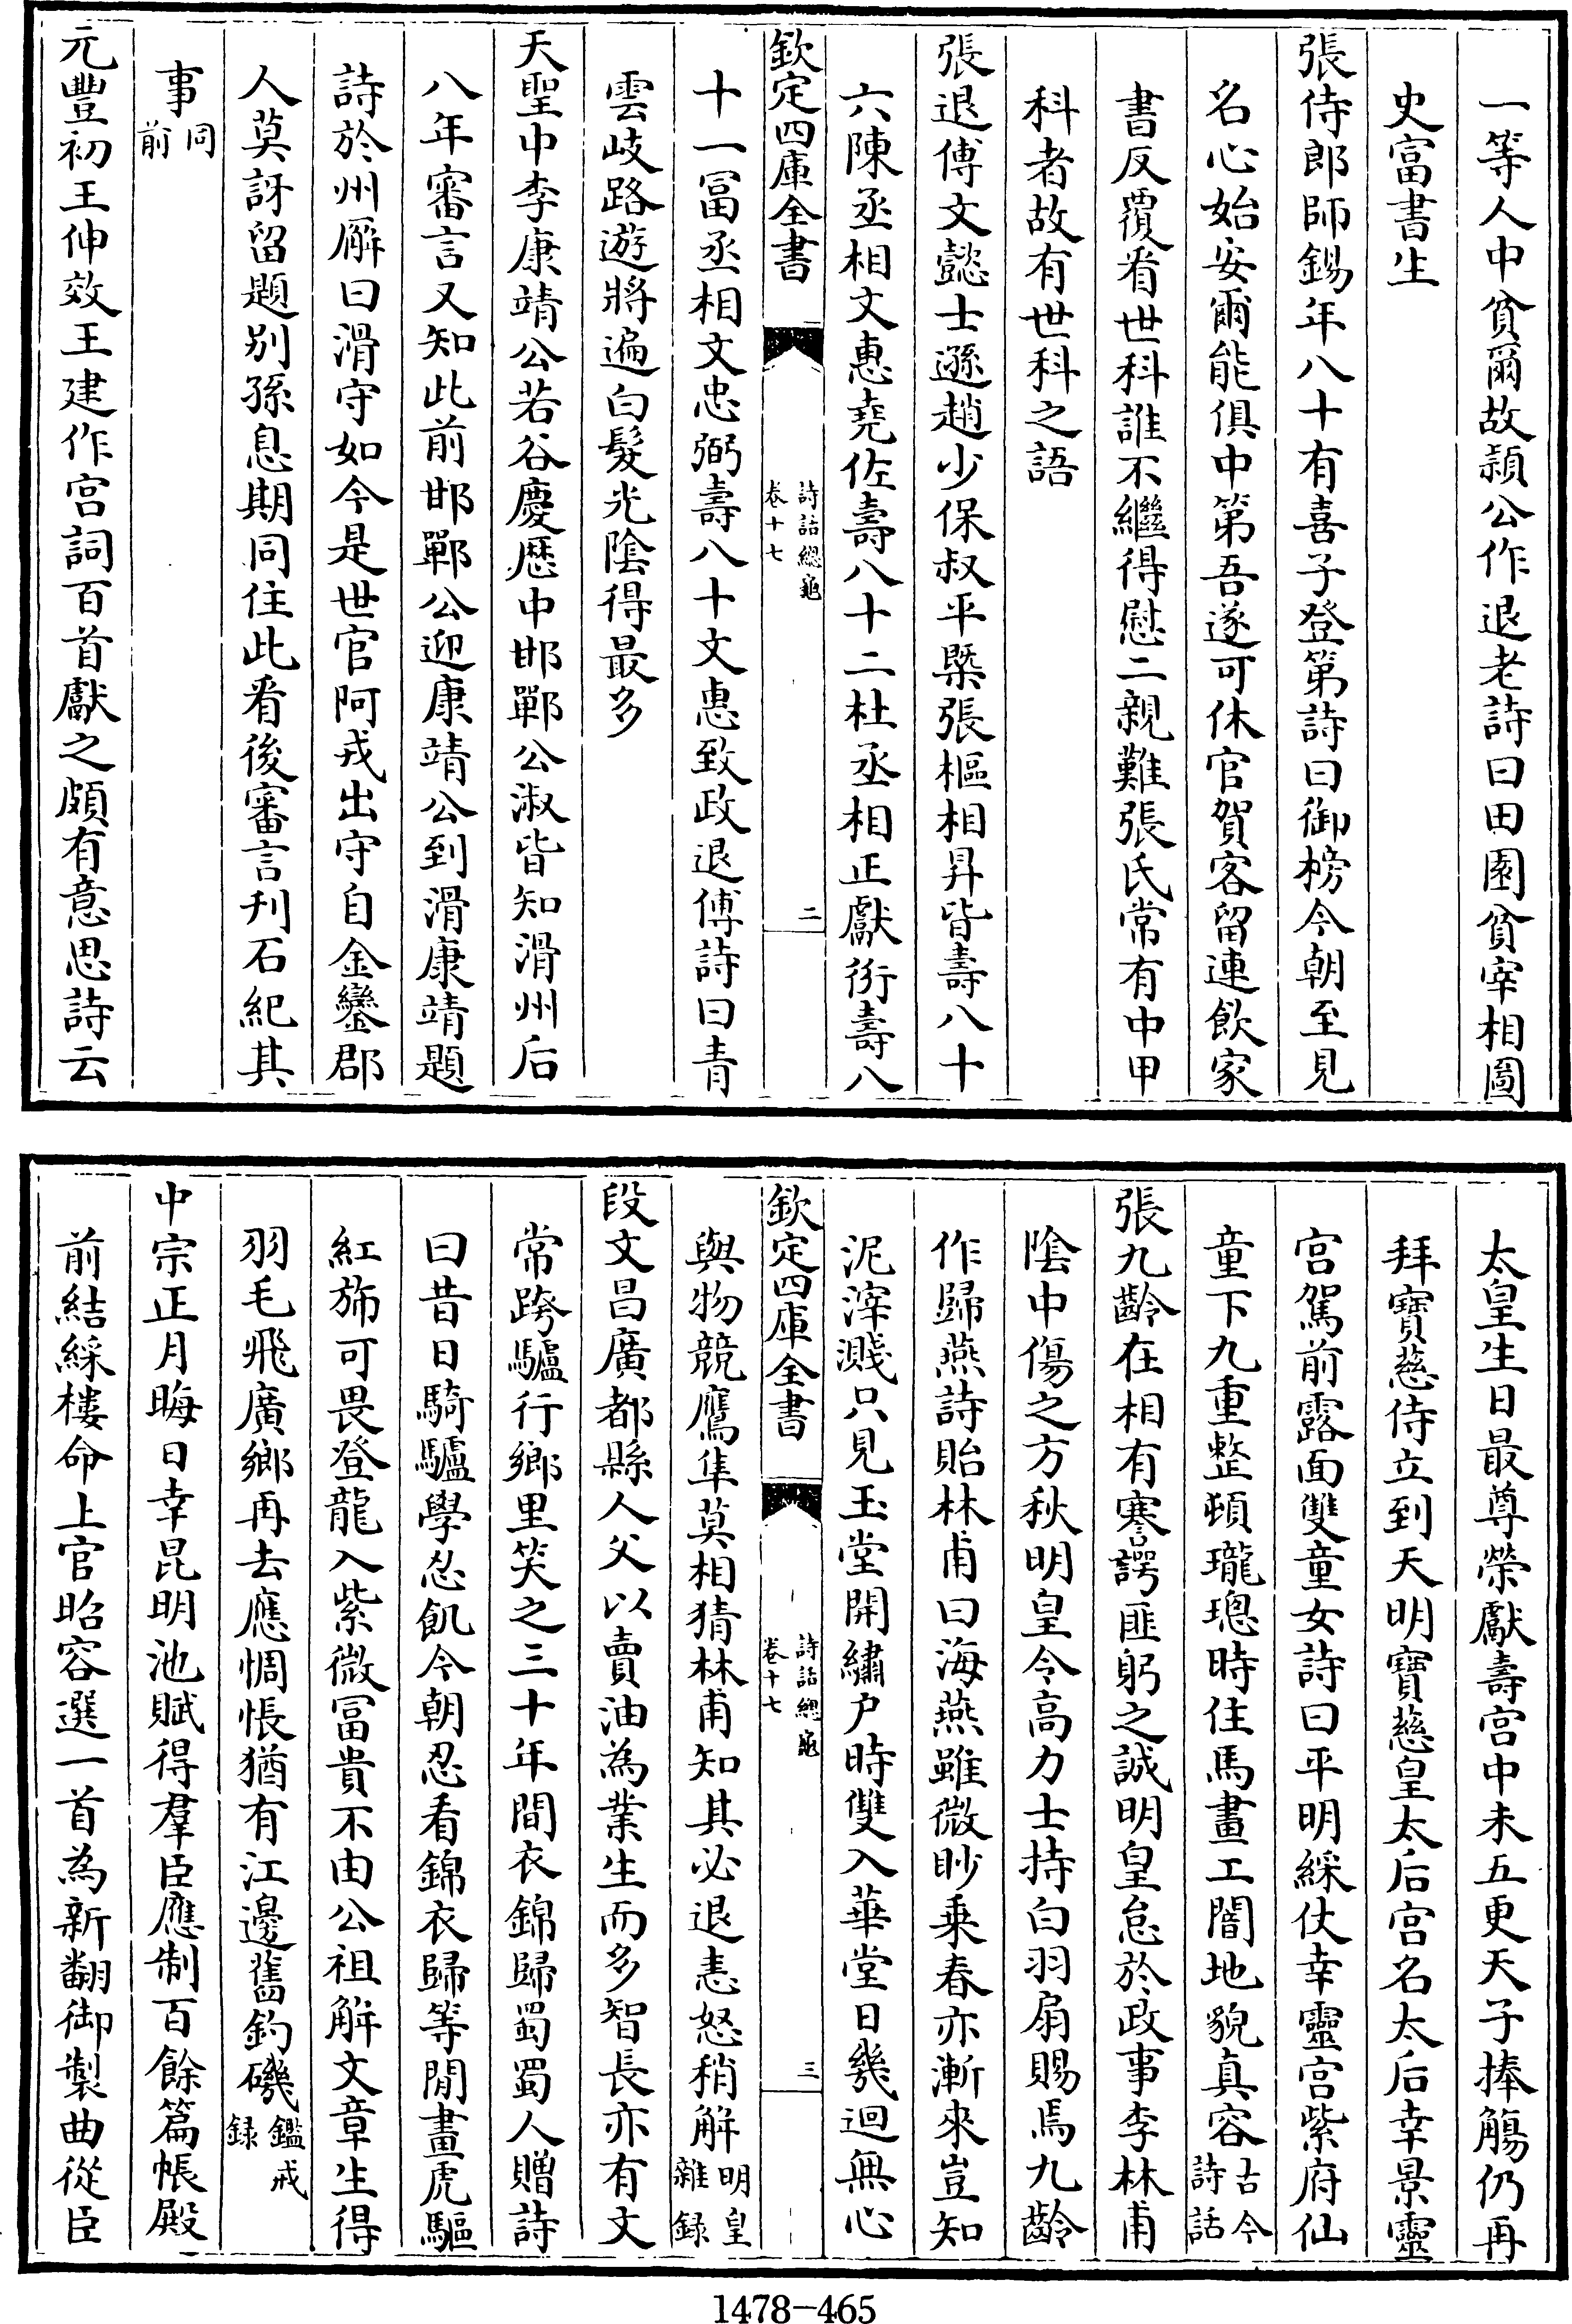 一等人中貧爾故頴公作退老詩曰田園貧宰相圖
史富書生
張侍郎師錫年八十有喜子登第詩曰御榜今朝至見
名心始安爾能俱中第吾遂可休官賀客留連飲家
書反覆看世科誰不繼得慰二親難張氏常有中甲
科者故有世科之語
張退傅文懿士遜趙少保叔平槩張樞相昇皆壽八十
六陳丞相文惠堯佐壽八十二杜丞相正獻衍壽八
欽定四庫全書
詩話總龜
卷十七
二
十一冨丞相文忠弼壽八十文惠致政退傅詩曰青
雲岐路遊將遍白髮光陰得最多
天聖中李康靖公若谷慶厯中邯鄲公淑皆知滑州后
八年審言又知此前邯鄲公迎康靖公到滑康靖題
詩於州廨曰滑守如今是世官阿戎出守自金鑾郡
人莫訝留題别孫息期同住此看後審言刋石紀其
事同前
元豐初王伸效王建作宫詞百首獻之頗有意思詩云
太皇生日最尊榮獻壽宫中未五更天子捧觴仍再
拜寶慈侍立到天明寶慈皇太后宫名太后幸景靈
宫駕前露面雙童女詩曰平明綵仗幸靈宫紫府仙
童下九重整頓瓏璁時住馬畫工闇地貌真容古今詩話
張九齡在相有謇諤匪躬之誠明皇怠於政事李林甫
陰中傷之方秋明皇令高力士持白羽扇賜焉九齡
作歸燕詩貽林甫曰海燕雖微眇乗春亦漸來豈知
泥滓濺只見玉堂開繡户時雙入華堂日幾迴無心
欽定四庫全書
詩話總龜
卷十七
三
與物競鷹隼莫相猜林甫知其必退恚怒稍解明皇雜録
段文昌廣都縣人父以賣油為業生而多智長亦有文
常跨驢行鄉里笑之三十年間衣錦歸蜀蜀人贈詩
曰昔日騎驢學忍飢今朝忍看錦衣歸等閒畫虎驅
紅斾可畏登龍入紫微冨貴不由公祖解文章生得
羽毛飛廣鄉再去應惆悵猶有江邊舊釣磯鑑戒録
中宗正月晦日幸昆明池賦得羣臣應制百餘篇帳殿
前結綵樓命上官昭容選一首為新翻御製曲從臣
1478-465